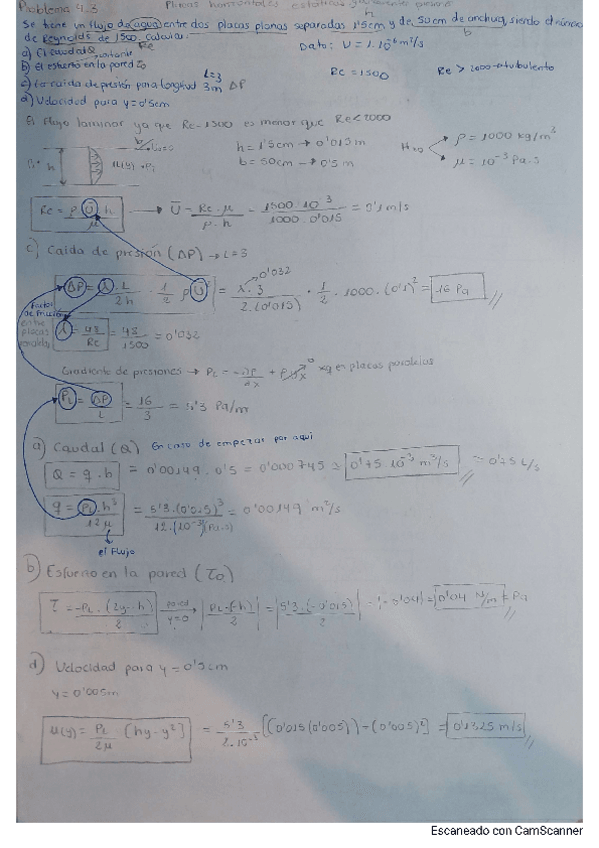 Problema 4.3 Placas horizontales estáticas gradiente presión
Se tiene un flujo de (agua) entre dos placas planas separadas 1'5cm y de 50cm de anchura, siendo el número
h
b
de Reynolds de 1500. Calcular:
Re
Dato: υ = 1.10⁻⁶ m²/s
a) El caudal Q
b) El esfuerzo en la pared τ₀
Re = 1500
Re > 2000 → turbulento
c) La caída de presión para longitud L=3 3m ΔP
d) Velocidad para y=0'5cm
El flujo laminar ya que Re=1500 es menor que Re<2000
h = 1'5cm → 0'015m
b = 50cm → 0'5m
H₂O
ρ = 1000 kg/m³
μ = 10⁻³ Pa·s
h
u(y)
Re = ρ Ū h / μ → Ū = Re · μ / ρ · h = 1500·10⁻³ / 1000·0'015 = 0'1 m/s
c) Caída de presión (ΔP) → L=3
0'032
ΔP = λ · L / 2h · 1/2 ρ Ū² = λ · 3 / 2·(0'015) · 1/2 · 1000 · (0'1)² = 16 Pa
Factor de fricción entre placas paralelas
λ = 48 / Re = 48 / 1500 = 0'032
Gradiente de presiones → PL = -dp / dx + ρ gx⁰ xq en placas paralelas
PL = ΔP / L = 16 / 3 = 5'3 Pa/m
a) Caudal (Q) En caso de empezar por aquí
Q = q · b = 0'00149 · 0'5 = 0'000745 ≃ 0'75·10⁻³ m³/s = 0'75 L/s
q = PL · h³ / 12 μ = 5'3·(0'015)³ / 12·(10⁻³)(Pa·s) = 0'00149 m²/s
el Flujo
b) Esfuerzo en la pared (τ₀)
τ = -PL · (2y-h) / 2 pared y=0 |PL·(-h) / 2| = |5'3·(-0'015) / 2| = |-0'04| = 0'04 N/m² = Pa
d) Velocidad para y = 0'5cm
y = 0'005m
u(y) = PL / 2μ · [hy-y²] = 5'3 / 2·10⁻³ [(0'015(0'005)) - (0'005)²] = 0'1325 m/s
Escaneado con CamScanner